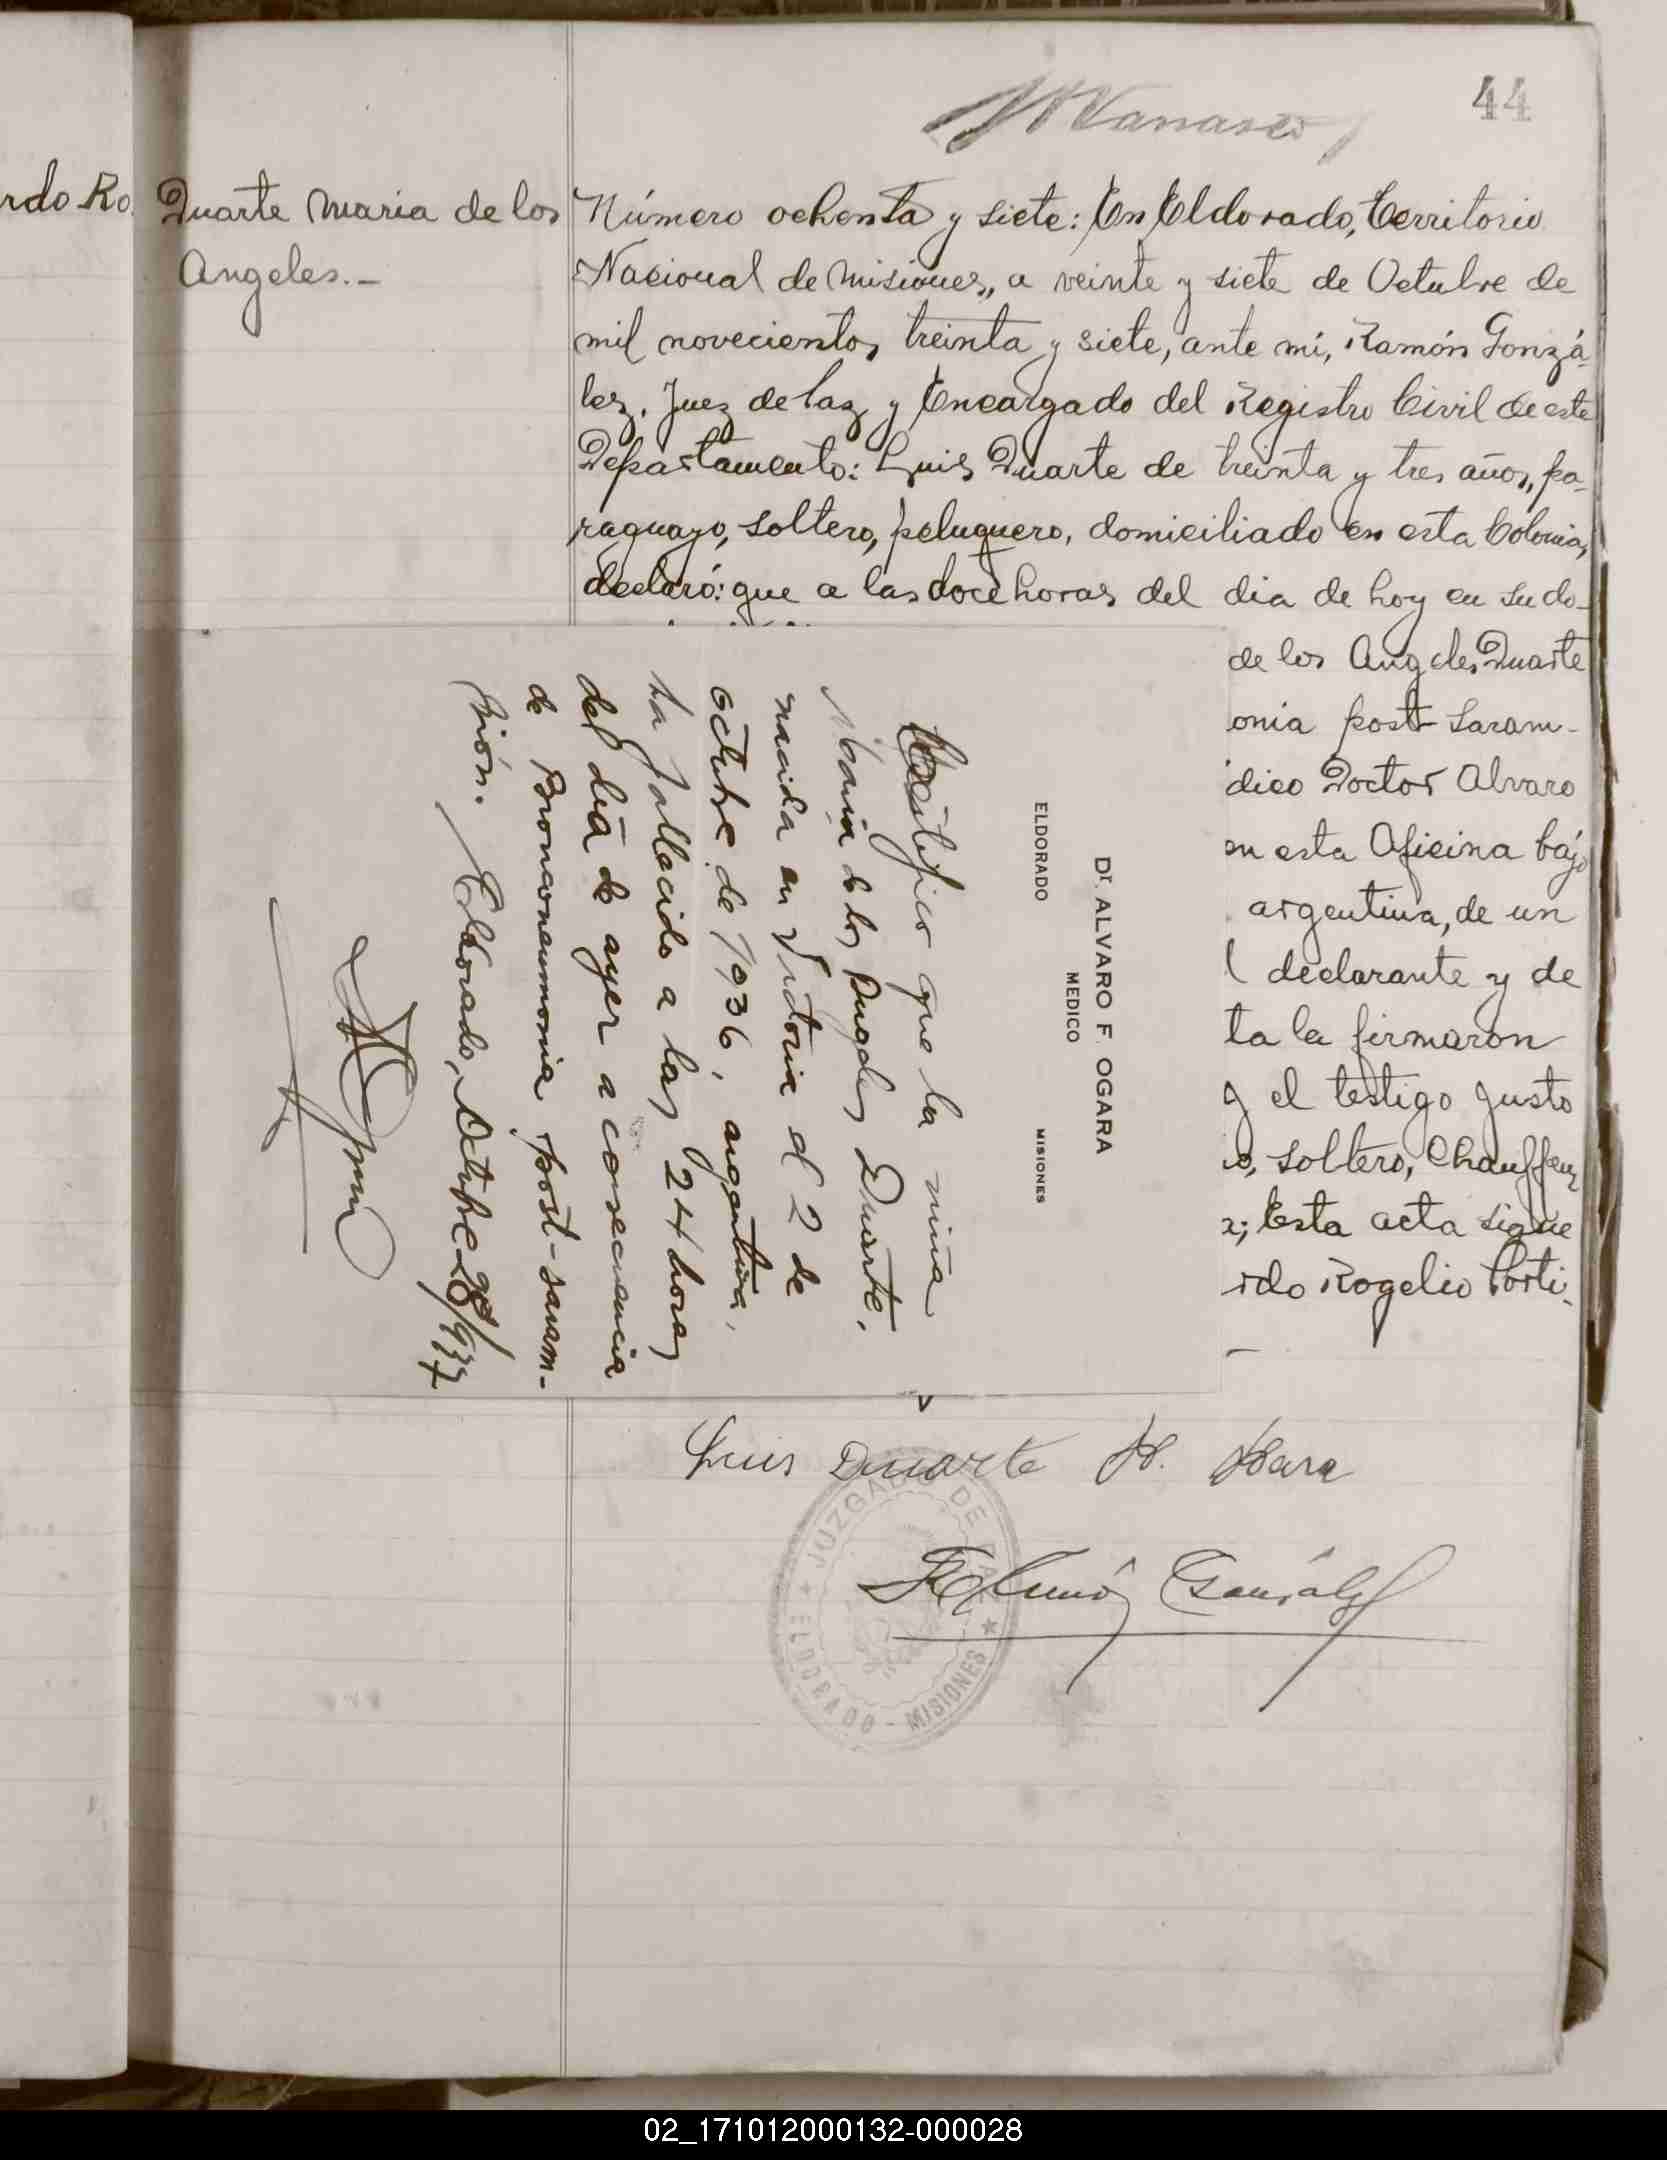 44
rdo Ro.
Duarte Maria de los
Angeles.-
Número ochenta y siete: En Eldorado, Territorio
Nacional de Misiones, a veinte y siete de Octubre de
mil novecientos treinta y siete, ante mí, Ramón Gonzá-
lez, Juez de Paz y Encargado del Registro Civil de este
Departamento: Luis Duarte de treinta y tres años, pa-
raguayo, soltero, peluquero, domiciliado en esta Colonia,
declaró: que a las doce horas del dia de hoy en su do-
de los Angeles Duarte
onia post-saram-
dico Doctor Alvaro
en esta Oficina bajo
argentina, de un
l declarante y de
ta la firmaron
y el testigo Justo
o, soltero, Chauffeur
esta acta sigue
rdo Rogelio Porti-
Dr. ALVARO F. OGARA
MEDICO
ELDORADO MISIONES
Certifico que la niña
Maria de los Angeles Duarte,
nacida en Victoria el 2 de
octubre de 1936, argentina,
ha fallecido a las 24 horas
del día de ayer a consecuencia
de Bronconeumonia post-saram-
pión. Eldorado, Octubre 28/937
Luis Duarte
Ramón González
JUZGADO DE PAZ
ELDORADO - MISIONES
02_171012000132-000028